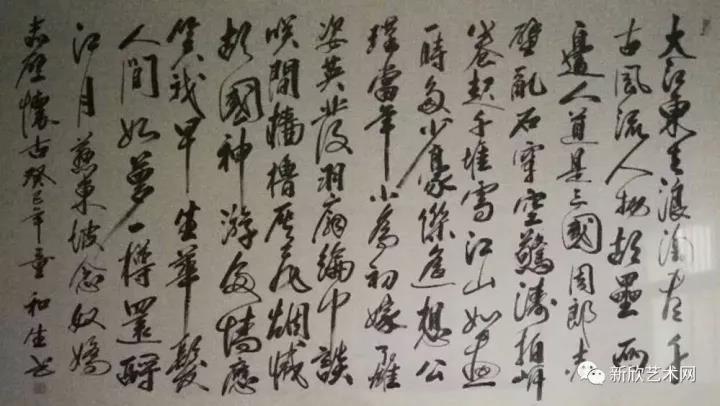 大江東去浪淘尽千
古風流人物故壘西
邊人道是三國周郎赤
壁亂石穿空驚濤拍岸
卷起千堆雪江山如畫
一時多少豪傑遙想公
瑾當年小喬初嫁了雄
姿英發羽扇綸巾談
笑間檣櫓灰飛烟滅
故國神游多情應
笑我早生華髮
人間如夢一樽還酹
江月蘇東坡念奴嬌
赤壁懷古癸巳年童和生书
新欣艺术网